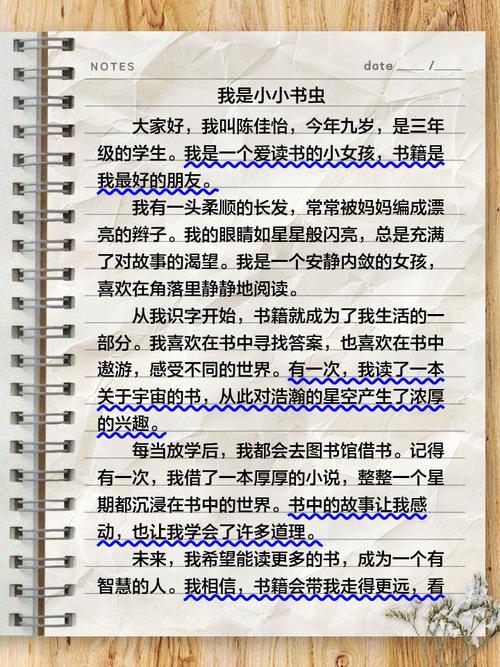 NOTES
date ____ / ____
我是小小书虫
大家好，我叫陈佳怡，今年九岁，是三年
级的学生。我是一个爱读书的小女孩，书籍是
我最好的朋友。
我有一头柔顺的长发，常常被妈妈编成漂
亮的辫子。我的眼睛如星星般闪亮，总是充满
了对故事的渴望。我是一个安静内敛的女孩，
喜欢在角落里静静地阅读。
从我识字开始，书籍就成为了我生活的一
部分。我喜欢在书中寻找答案，也喜欢在书中
遨游，感受不同的世界。有一次，我读了一本
关于宇宙的书，从此对浩瀚的星空产生了浓厚
的兴趣。
每当放学后，我都会去图书馆借书。记得
有一次，我借了一本厚厚的小说，整整一个星
期都沉浸在书中的世界。书中的故事让我感
动，也让我学会了许多道理。
未来，我希望能读更多的书，成为一个有
智慧的人。我相信，书籍会带我走得更远，看